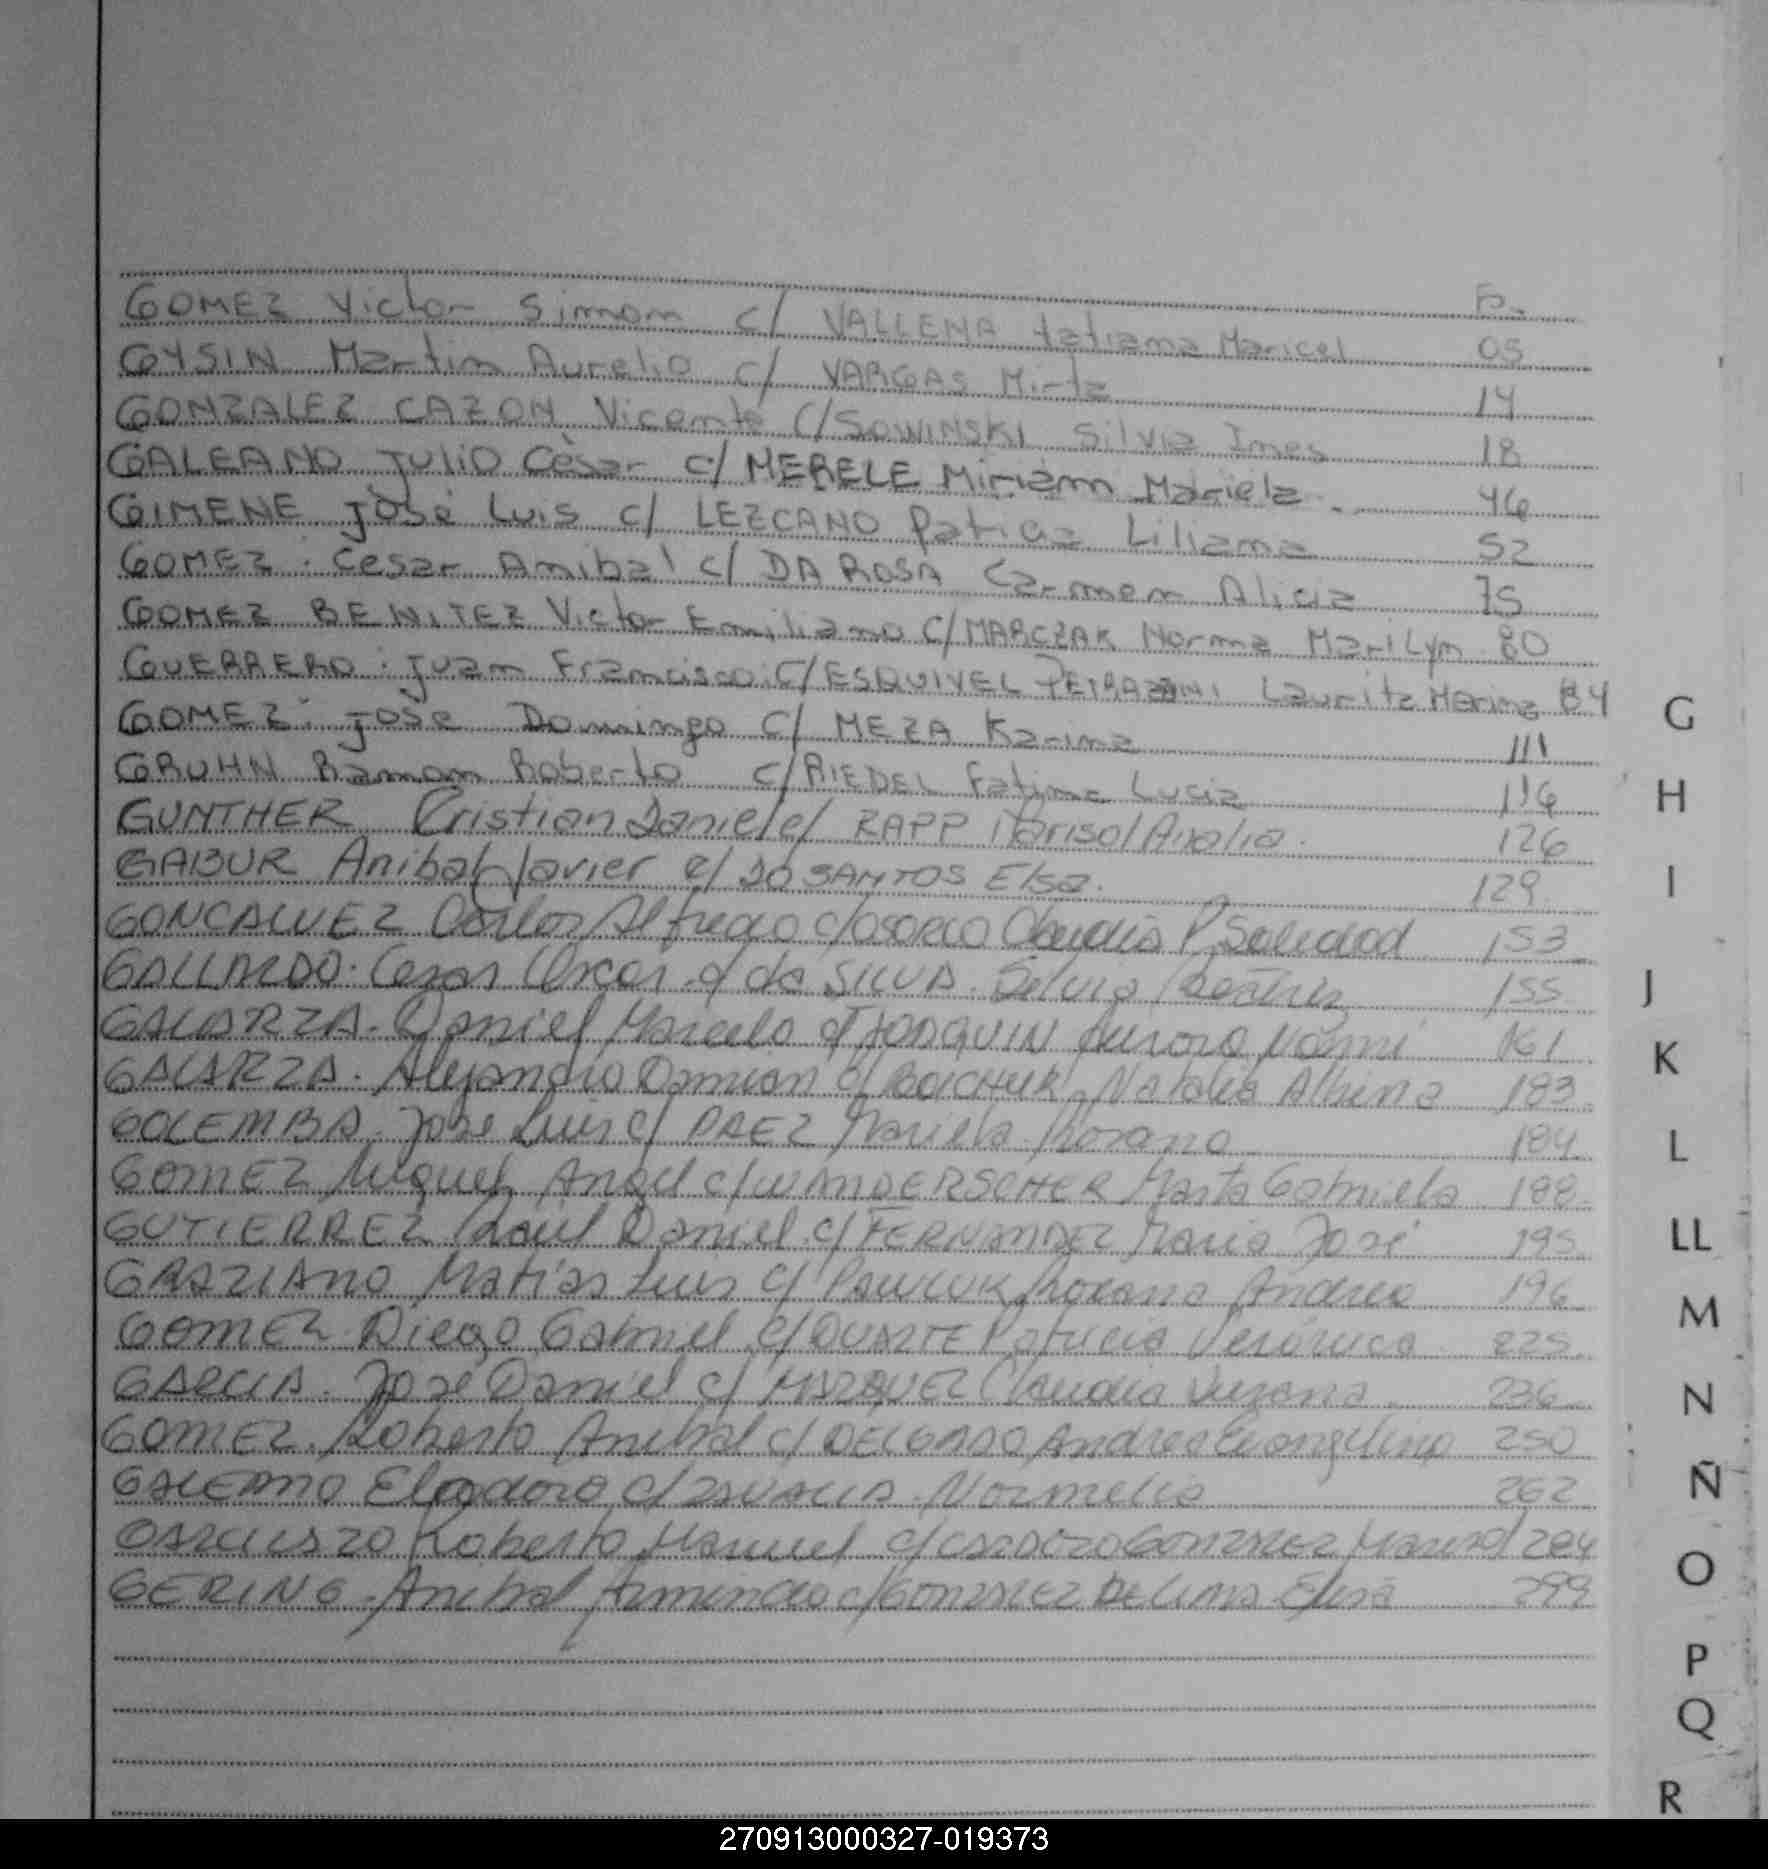 Fo.
GOMEZ Victor Simon c/ VALLENA tatiana Maricel 05
GYSIN Martin Aurelio c/ VARGAS Mirta 14
GONZALEZ CAZON Vicente C/SOWINSKI Silvia Ines 18
GALEANO JULIO Cèsar c/ MERELE Miriam Mariela 46
GIMENE Josè Luis c/ LEZCANO Patricia Liliana 52
GOMEZ: Cesar Anibal c/ DA ROSA Carmen Alicia 75
GOMEZ BENITEZ Victor Emiliano C/MARCZAK Norma MariLyn 80
GUERRERO: Juan Francisco: C/ESQUIVEL Laurita Marina 84
GOMEZ: Josè Domingo c/ MEZA Karina 111
GRUHN Ramon Roberto c/ RIEDEL Fatima Lucia 116
GUNTHER Cristian Daniel c/ RAPP Marisol Analia. 126
GABUR Anibal Javier c/ DO SANTOS Elsa. 129
GONCALVEZ Carlos Alfredo c/OSORIO Claudia P. Soledad 153
GALLARDO: Cesar Oscar c/ da SILVA. Silvia Beatriz 155
GALARZA. Daniel Marcelo c/ JOAQUIN Aurora Noemi 161
GALARZA. Alejandro Damian c/ BOICHUK Natalia Albina 183
GOLEMBA. José Luis c/ PAEZ Mariela Rosana 184
GOMEZ Miguel Angel c/WANDERSCHER Marta Gabriela 188
GUTIERREZ Raúl Daniel c/ FERNANDEZ Maria José 195
GRAZIANO Matías Luis c/ PAWLUK Rosana Andrea 196
GOMEZ Diego Gabriel c/DUARTE Patricia Verónica 225
GARCIA. José Daniel c/ MARQUEZ Claudia Susana 236
GOMEZ. Roberto Anibal c/ DELGADO Andrea Evangelina 250
GALEANO Eleodoro c/ Normelia 262
Roberto Manuel c/ GONZALEZ 284
GERING. Anibal Armindo c/GONZALEZ DE LIMA Elisa 299
G
H
I
J
K
L
LL
M
N
Ñ
O
P
Q
R
270913000327-019373